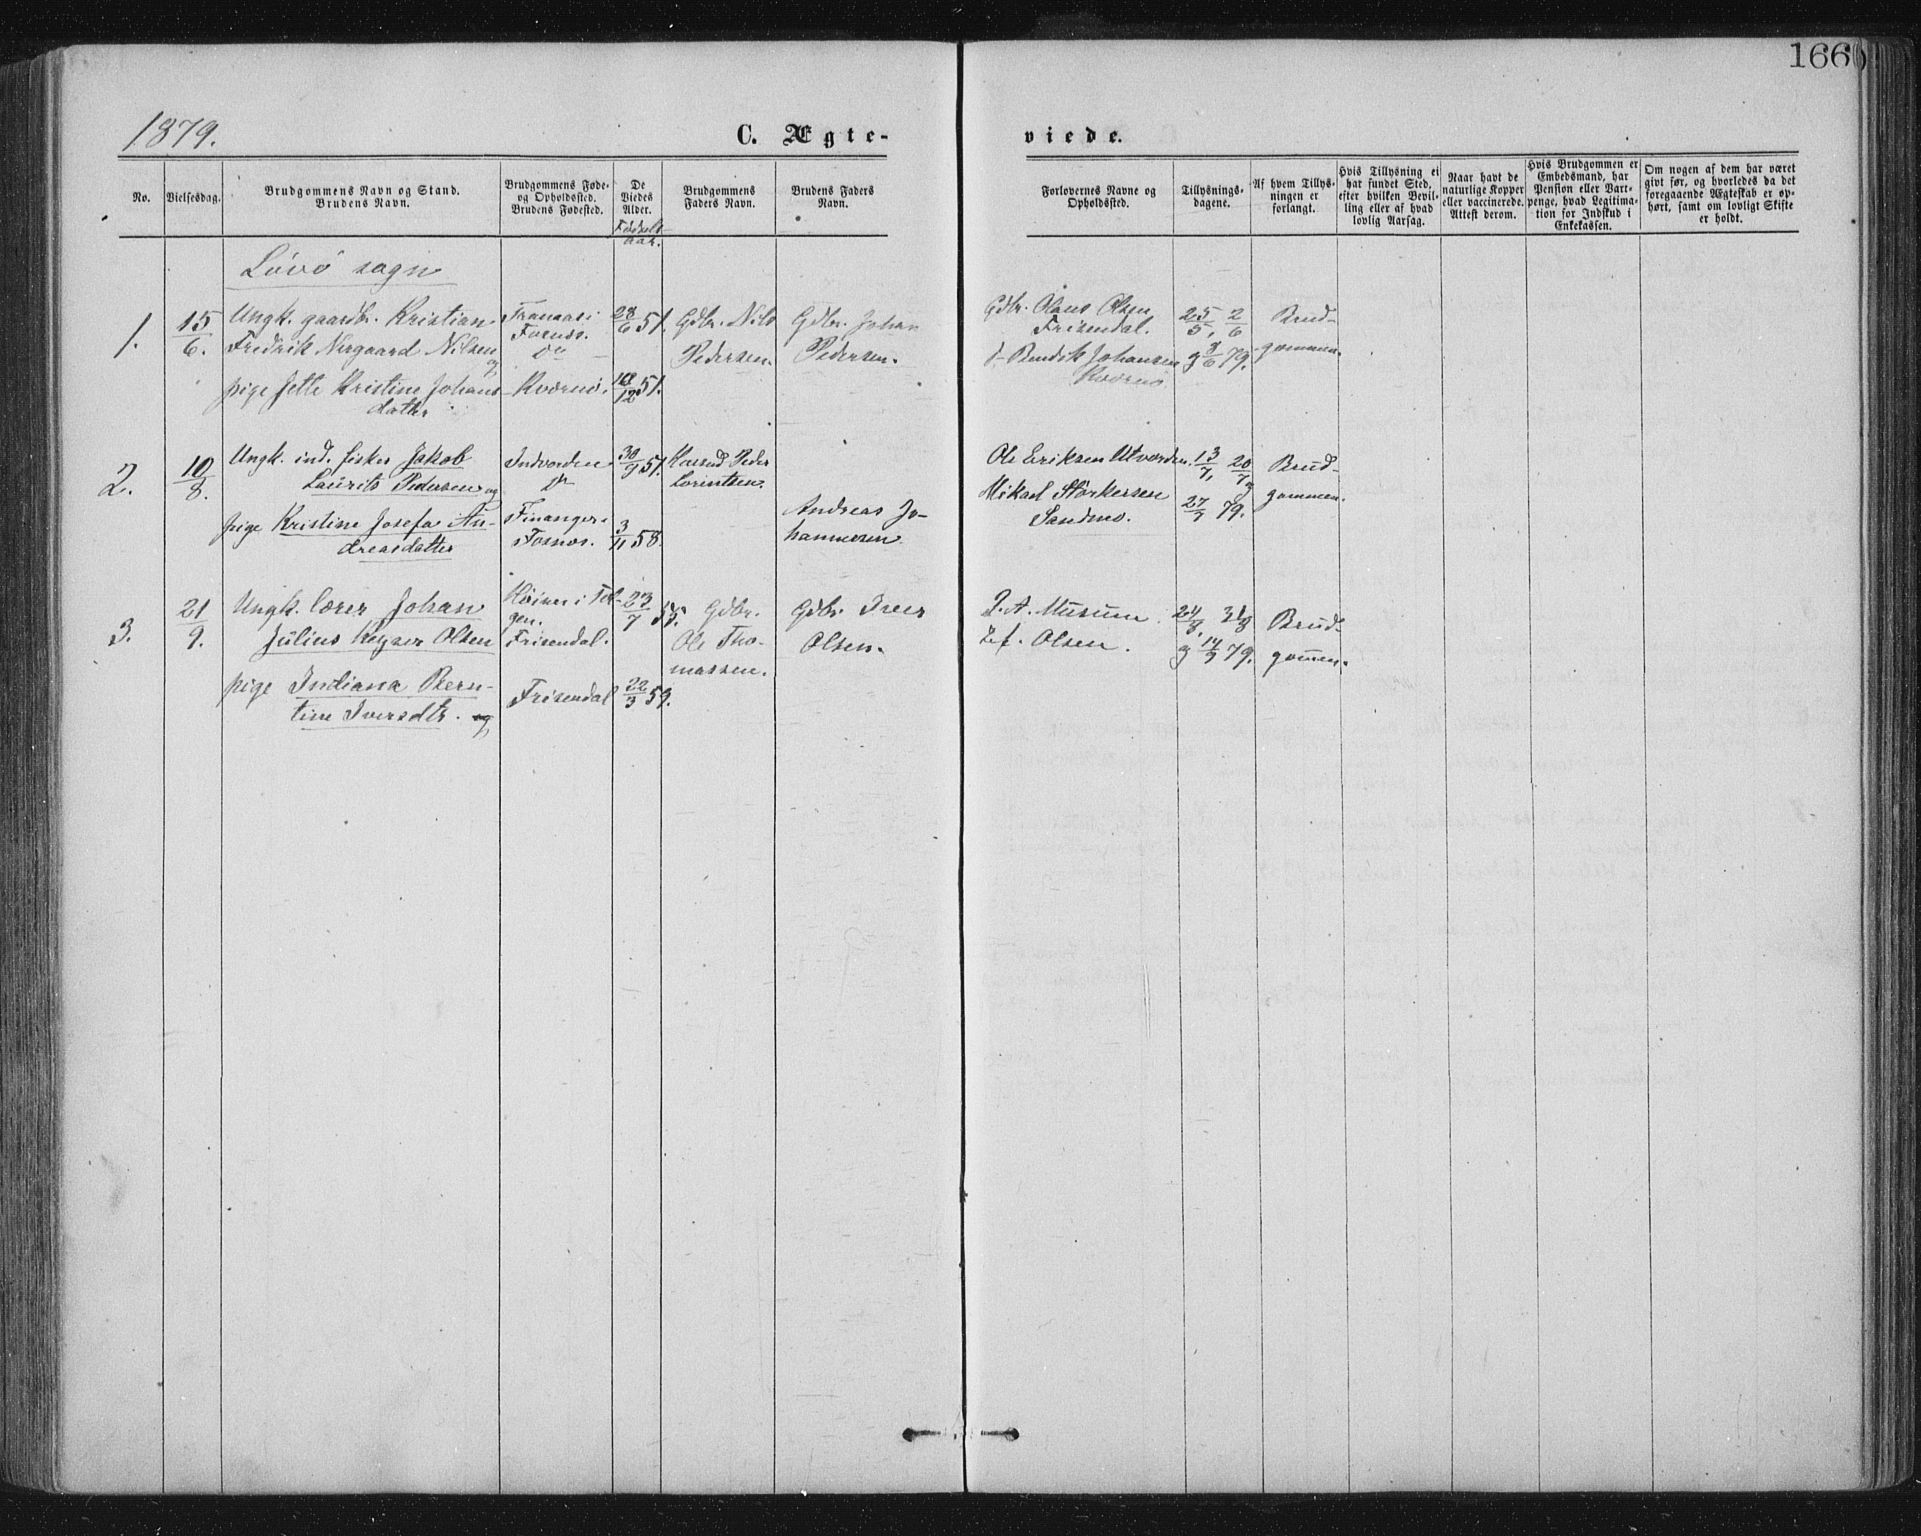 166
1879.
C. Ægte-
viede.
No.
Vielsesdag.
Brudgommens Navn og Stand.
Brudens Navn.
Brudgommens Føde-
og Opholdssted.
Brudens Fødested.
De
Viedes
Alder.
Fødsels
aar.
Brudgommens
Faders Navn.
Brudens Faders
Navn.
Forlovernes Navne og
Opholdssted.
Tillysnings-
dagene.
Af hvem Tillys-
ningen er
forlangt.
Hvis Tillysning ei
har fundet Sted,
efter hvilken Bevil-
ling eller af hvad
lovlig Aarsag.
Naar havt de
naturlige Kopper
eller vaccinerede.
Attest derom.
Hvis Brudgommen er
Embedsmand, har
Pension eller Vart-
penge, hvad Legitima-
tion for Indskud i
Enkekassen.
Om nogen af dem har været
givt før, og hvorledes da det
foregaaende Ægteskab er op-
hørt, samt om lovligt Skifte
er holdt.
Løvø sogn
1.
15/6.
Ungk. gaardbr. Kristian
Fredrik Norgaard Nilsen
og
pige Jette Kristine Johans
datter
Tranaas i
Fosnæs.
Do
Kvernø.
28/6 51.
18/12 51.
Gdbr. Nils
Pedersen.
Gdbr. Johan
Pedersen.
Gdbr. Olaus Olsen
Frisendal.
d- Bendik Johansen
Kvernø
25/5, 2/6
g 8/6 79.
Brud-
gommen.
2.
10/8.
Ungk. ind. fisker Jakob
Laurits Pedersen og
pige Kristine Josefa An-
dreasdatter
Indvorden
Do
Finanger i
Fosnæs.
30/9 51.
3/11 58.
Peder
Lorintsen.
Andreas Jo-
hannessen.
Ole Eriksen Utvorden.
Mikael Størkersen
Sandmo.
13/7, 20/7 g
27/7 79.
Brud-
gommen.
3.
21/9.
Ungk. lærer Johan
Julius Keyser Olsen
pige Indiana Bern-
tine Iversdtr. og
gen.
Frisendal.
Frisendal
23/7 55.
22/3 59.
Gdbr.
Ole Tho-
massen.
Gdbr. Iver
Olsen.
P. A. Musum
Olsen.
24/8, 31/8
g 14/9 79.
Brud-
gommen.